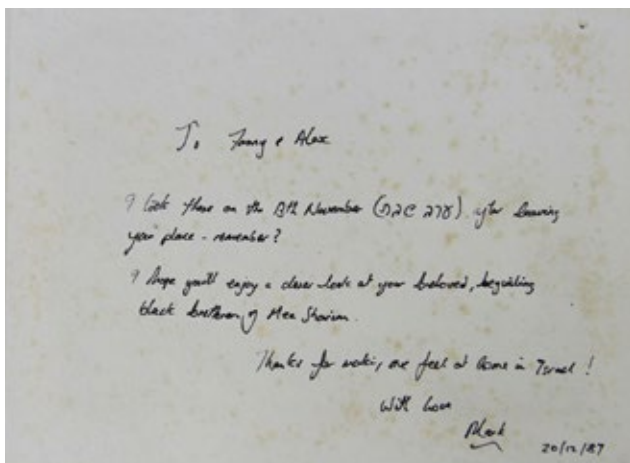 To Fanny & Alex
I took these on the 13th November (ערב שבת) after leaving
your place - remember?
I hope you'll enjoy a closer look at your beloved, beguiling
black brethren of Mea Shearim.
Thanks for making me feel at home in Israel !
With love
Mark
20/12/87